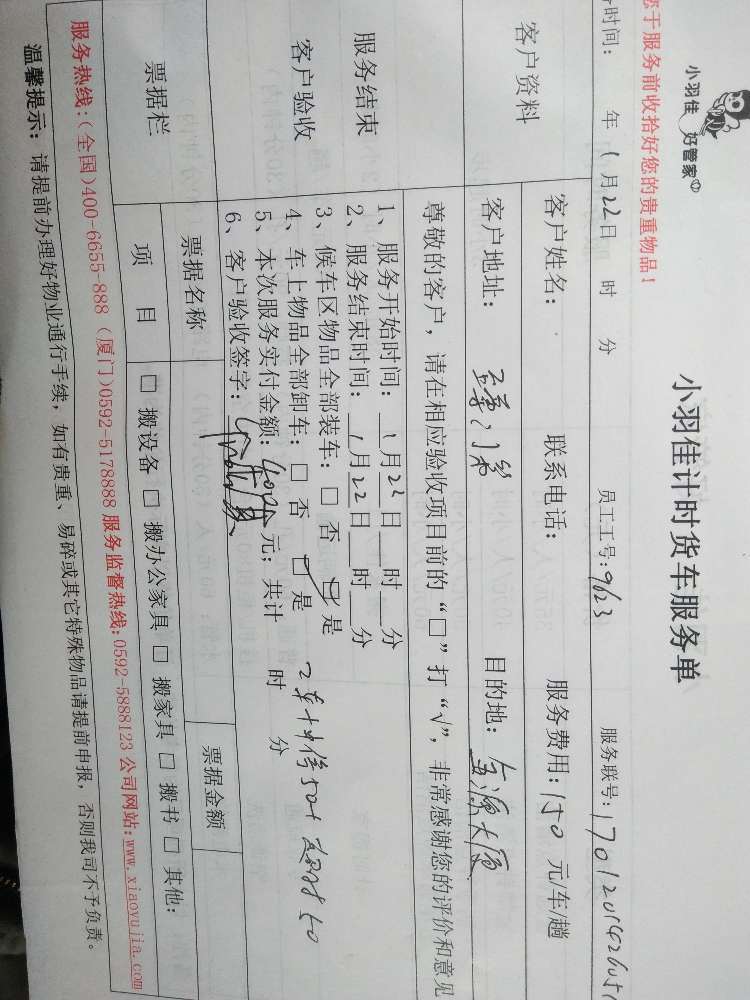 小羽佳 好管家
小羽佳计时货车服务单
您于服务前收拾好您的贵重物品！
时间： 年 1月22日 时 分 员工工号：9623 服务联号：
客户资料
客户姓名： 联系电话： 服务费用：150 元/车/趟
客户地址： 目的地：
尊敬的客户，请在相应验收项目前的“□”打“√”，非常感谢您的评价和意见
服务结束
客户验收
1、服务开始时间：1月22日 时 分
2、服务结束时间：1月22日 时 分
3、候车区物品全部装车：□ 否 □ 是
4、车上物品全部卸车：□ 否 □ 是
5、本次服务实付金额：400元；共计 时 分
6、客户验收签字：
票据栏
票据名称 票据金额
项 目 □ 搬设备 □ 搬办公家具 □ 搬家具 □ 搬书 □ 其他:
服务热线:(全国)400-6655-888 (厦门)0592-5178888 服务监督热线:0592-5888123 公司网站:www.xiaoyujia.com
温馨提示：请提前办理好物业通行手续，如有贵重、易碎或其它特殊物品请提前申报，否则我司不予负责。